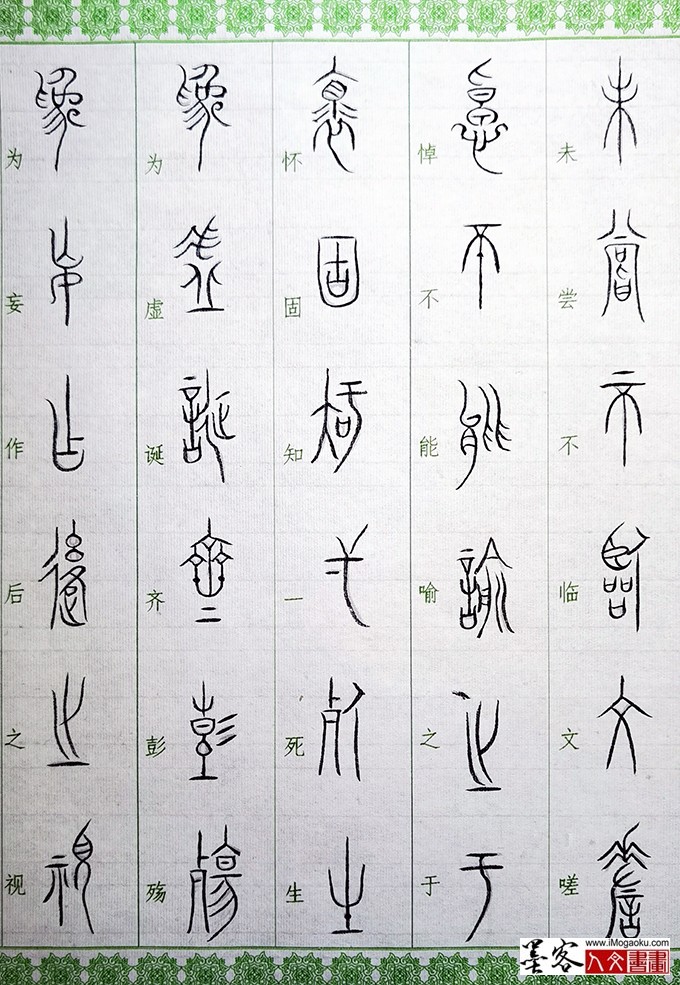 未尝不临文嗟
悼不能喻之于
怀固知一死生
为虚诞齐彭殇
为妄作后之视
墨客
www.iMogaoku.com
人文書畫